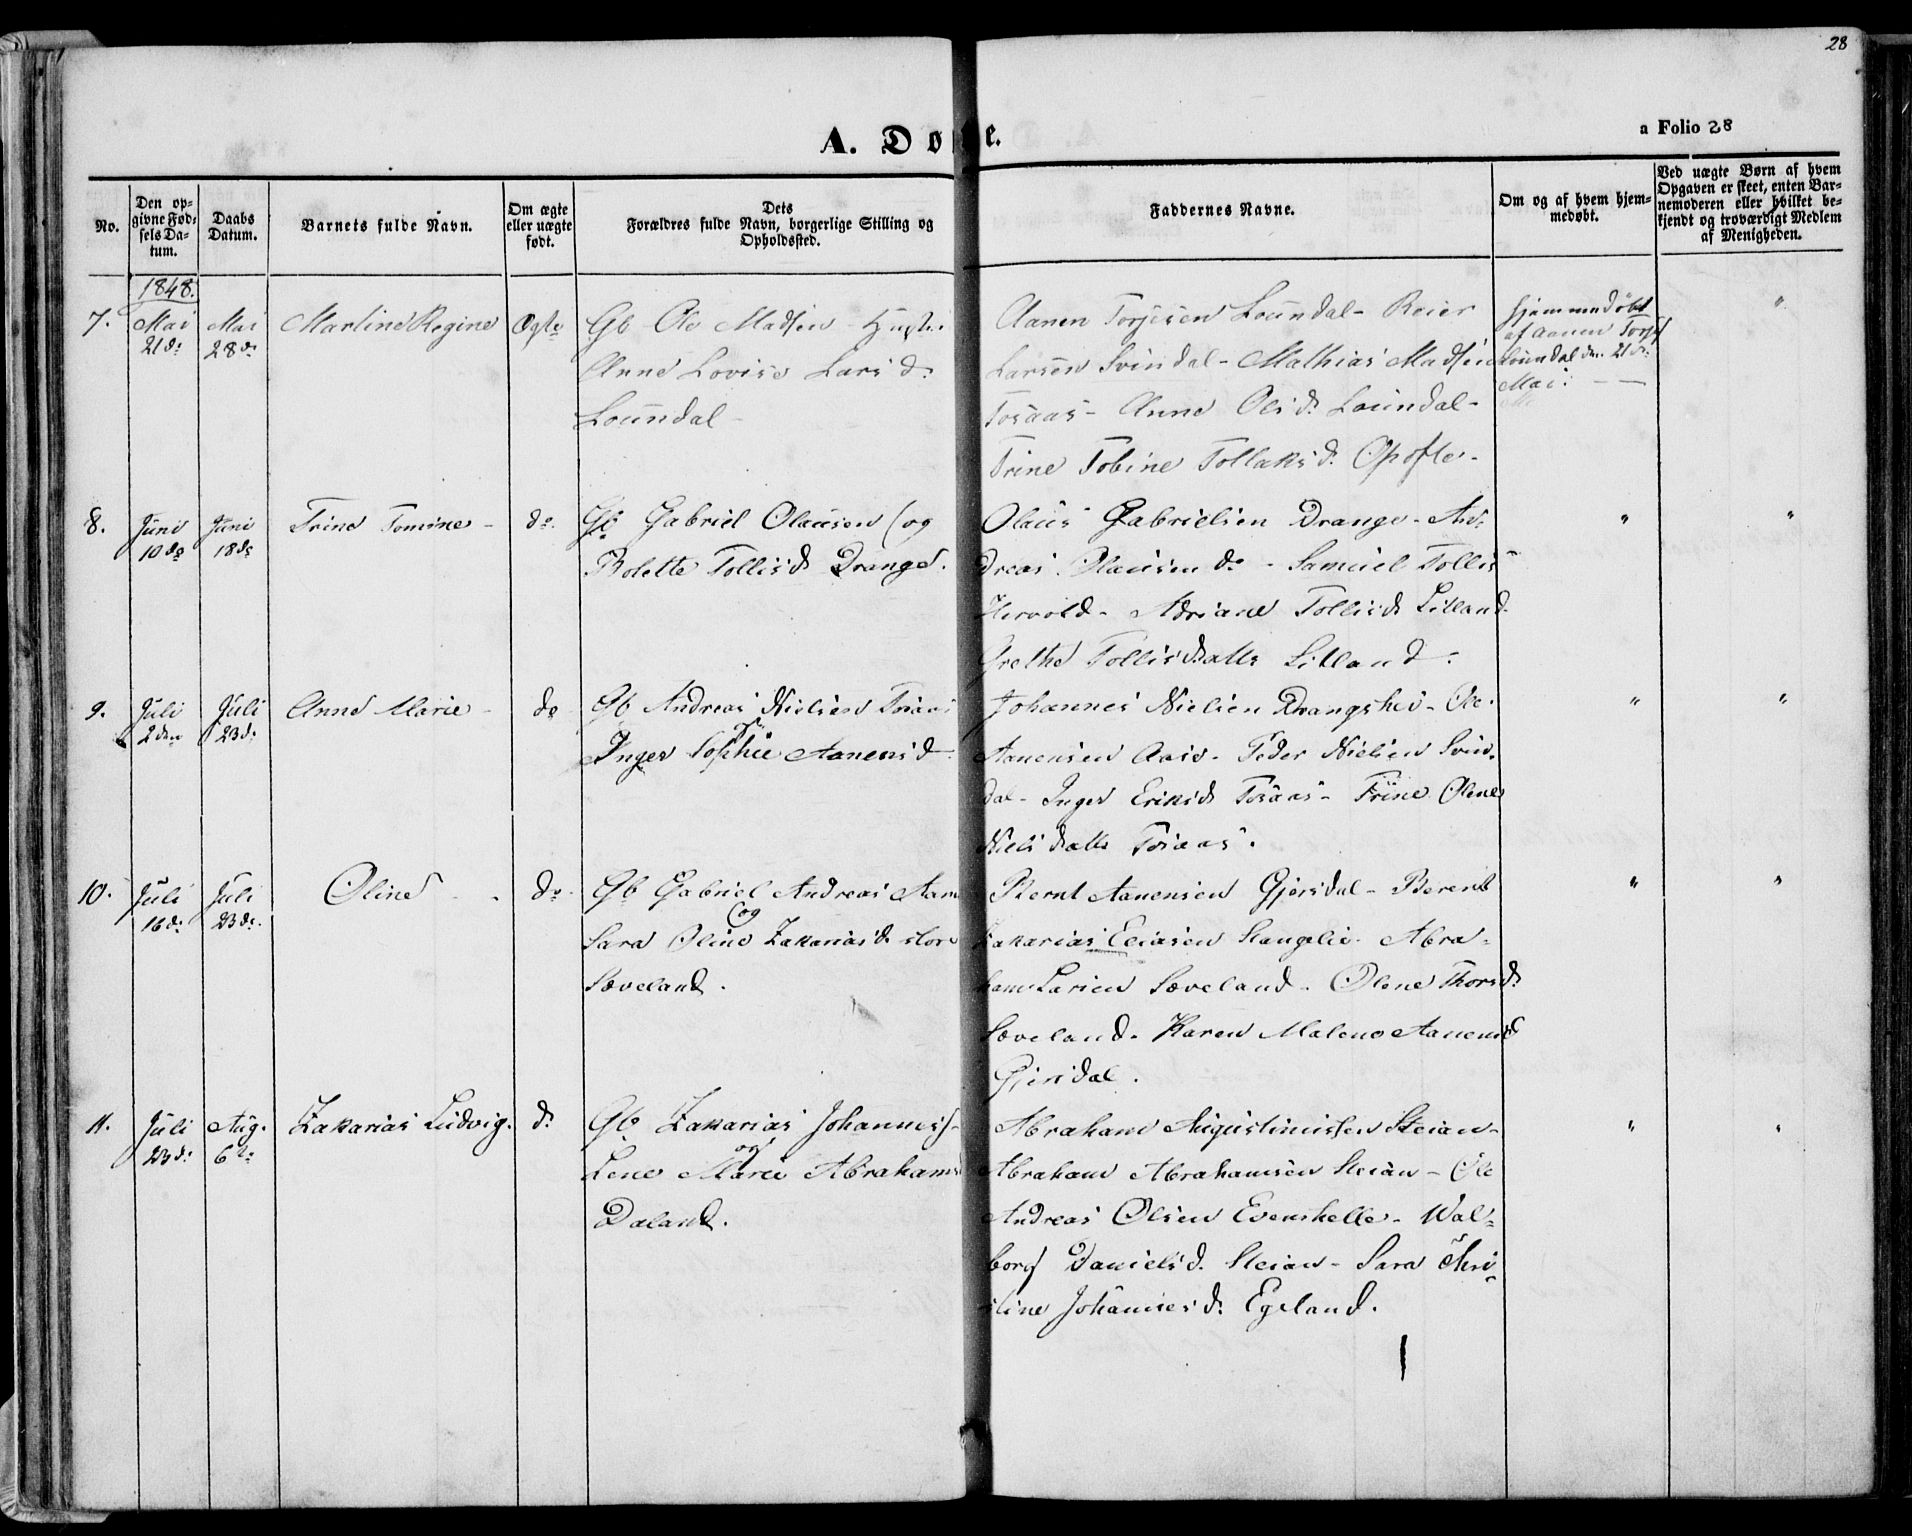 28
A. Døbte.
a Folio 28
No.
Den op-
givne Fød-
sels Da-
tum.
Daabs
Datum.
Barnets fulde Navn.
Om ægte
eller uægte
født.
Dets
Forældres fulde Navn, borgerlige Stilling og
Opholdssted.
Faddernes Navne.
Om og af hvem hjem-
medøbt.
Ved uægte Børn af hvem
Opgaven er skeet, enten Bar-
nemoderen eller hvilket be-
kjendt og troværdigt Medlem
af Menigheden.
1848.
7.
Mai
21d:
Mai
28d:
Martine Regine
Ægte
Gb Ole Madsen - Hustr.
Anne Lovise Larsd:
Loundal -
Aanen Torjesen Loundal - Reier
Larsen Svindal - Mathias Madsen
Tosaas - Anne Olsd: Loundal -
Trine Tobine Tollaksd: Opofte -
Hjemmedøbt
af Aanen Torjs
Loundal den 21d:
Mai: - -
"
8.
Juni
10de
Juni
18de
Trine Tomine -
do.
Gb Gabriel Olausen (og
Bolette Tollisd Drange.
Olaus Gabrielsen Drange - An-
dreas Olausen do - Samuel Tollis
Hervold - Adriane Tollisd Litland
Grethe Tollisdatt Litland.
"
"
9.
Juli
2den
Juli
23d:
Anne Marie -
do
Gb Andreas Nielsen Tosaas
Inger Sophie Aanensd -
Johannes Nielsen Drangshei - Ole
Aanensen Aase - Peder Nielsen Svin-
dal - Inger Eriksd Tosaas - Trine Olene
Nielsdatt Tosaas.
"
"
10.
Juli
16d:
Juli
23d:
Oline - -
do
Gb Gabriel Andreas Aan
(og
Sara Oline Zakariasd. store
Sæveland.
Bernt Aanensen Gjersdal - Berent
Zakarias Eliasen Stangelie - Abra-
ham Larsen Sæveland - Olene Thorsd:
Sæveland. Karen Malene Aanensd
Gjersdal.
"
"
11.
Juli
23d:
Aug.
6te
Zakarias Ludvig.
d:
Gb Zakarias Johanness -
og
Lene Marie Abrahamsd
Daland.
Abraham Augustinussen Steian -
Abraham Abrahamsen Steian - Ole
Andreas Olsen Evenskelle - Wal-
borg Danielsd. Steian - Sara Chri-
stine Johannesd: Egeland.
"
"